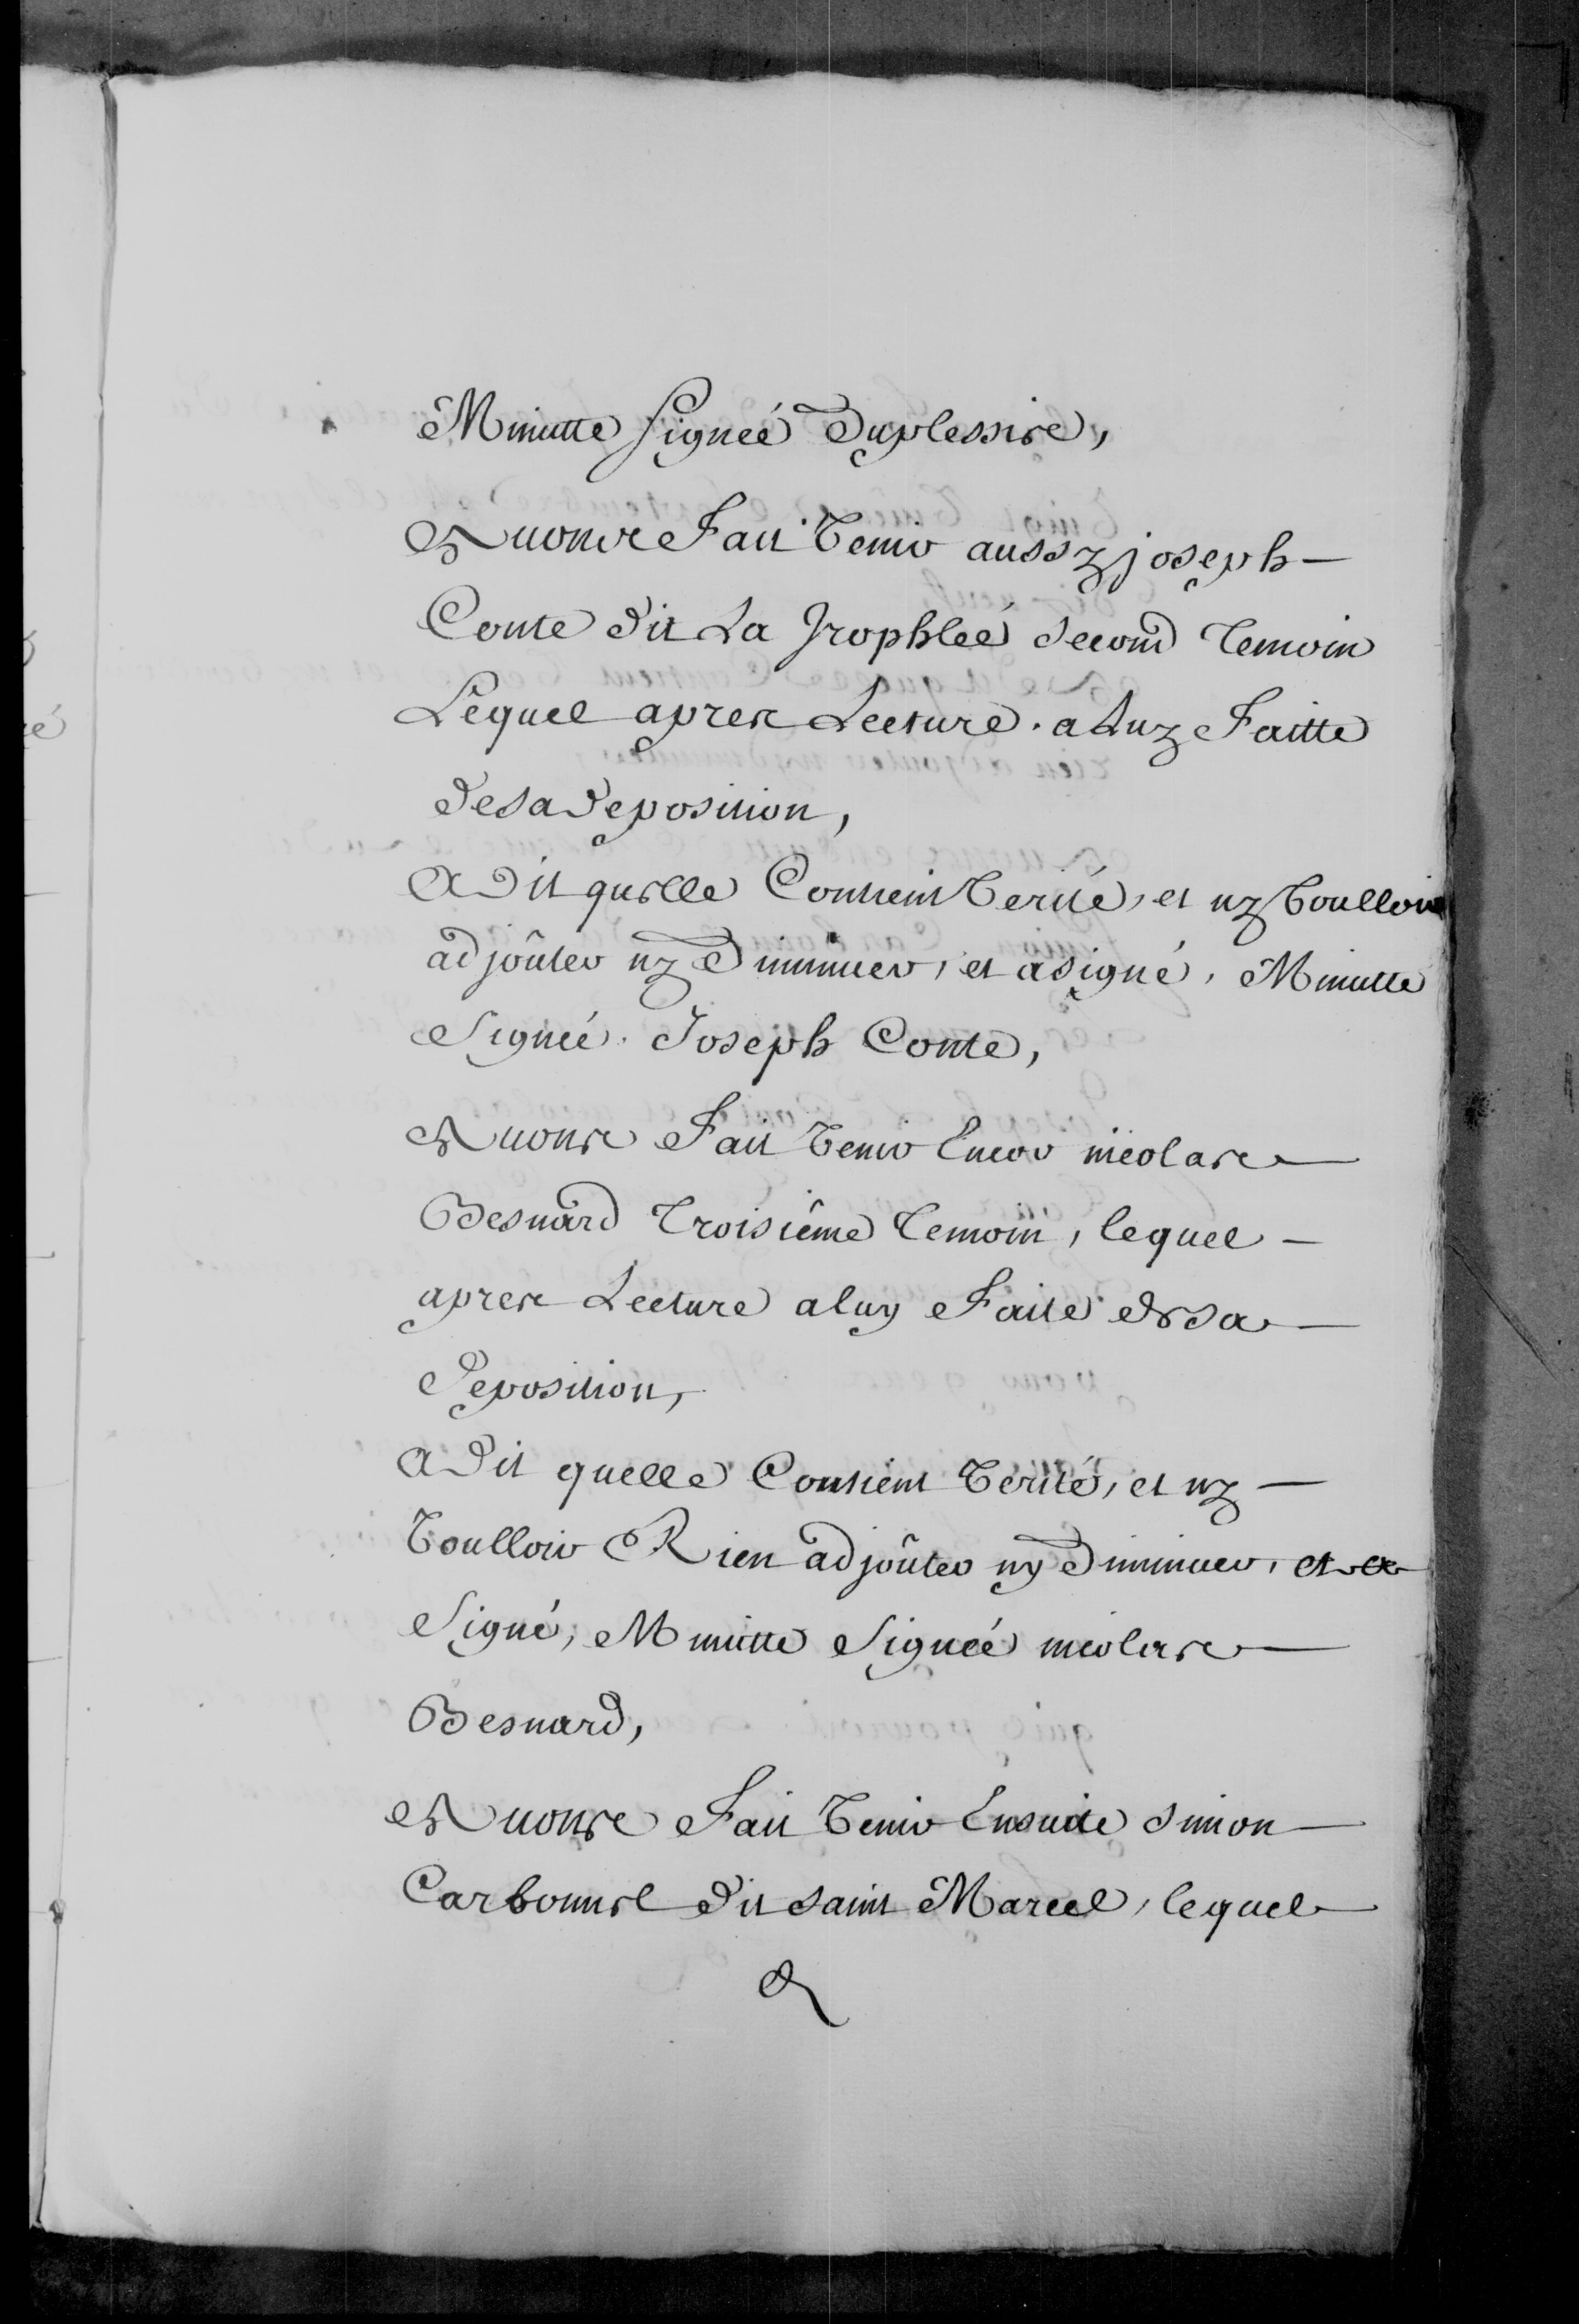 Minutte signeé Duplessis,
Et avons Fait Venir aussy joseph
Conte dit La Trophleé second Temoin
Lequel apres Lecture a Luy Faitte
de sa deposition,
A Dit quelle Contient Verité, et ny Vouloir
adjoûter ny Diminuer, et a signé, Minutte
Signeé Joseph Conte,
Et avons Fait Venir Encor nicolas
Besnard Troisiême Temoin, lequel
apres Lecture a luy Faite de sa
Deposition,
A Dit quelle Contient Verité, et ny
Voulloir Rien adjoûter ny Diminuer, et a
Signé, Minutte Signeé nicolas
Besnard,
et avons Fait Venir Ensuite simon
Carbonnel dit saint Marcel, lequel